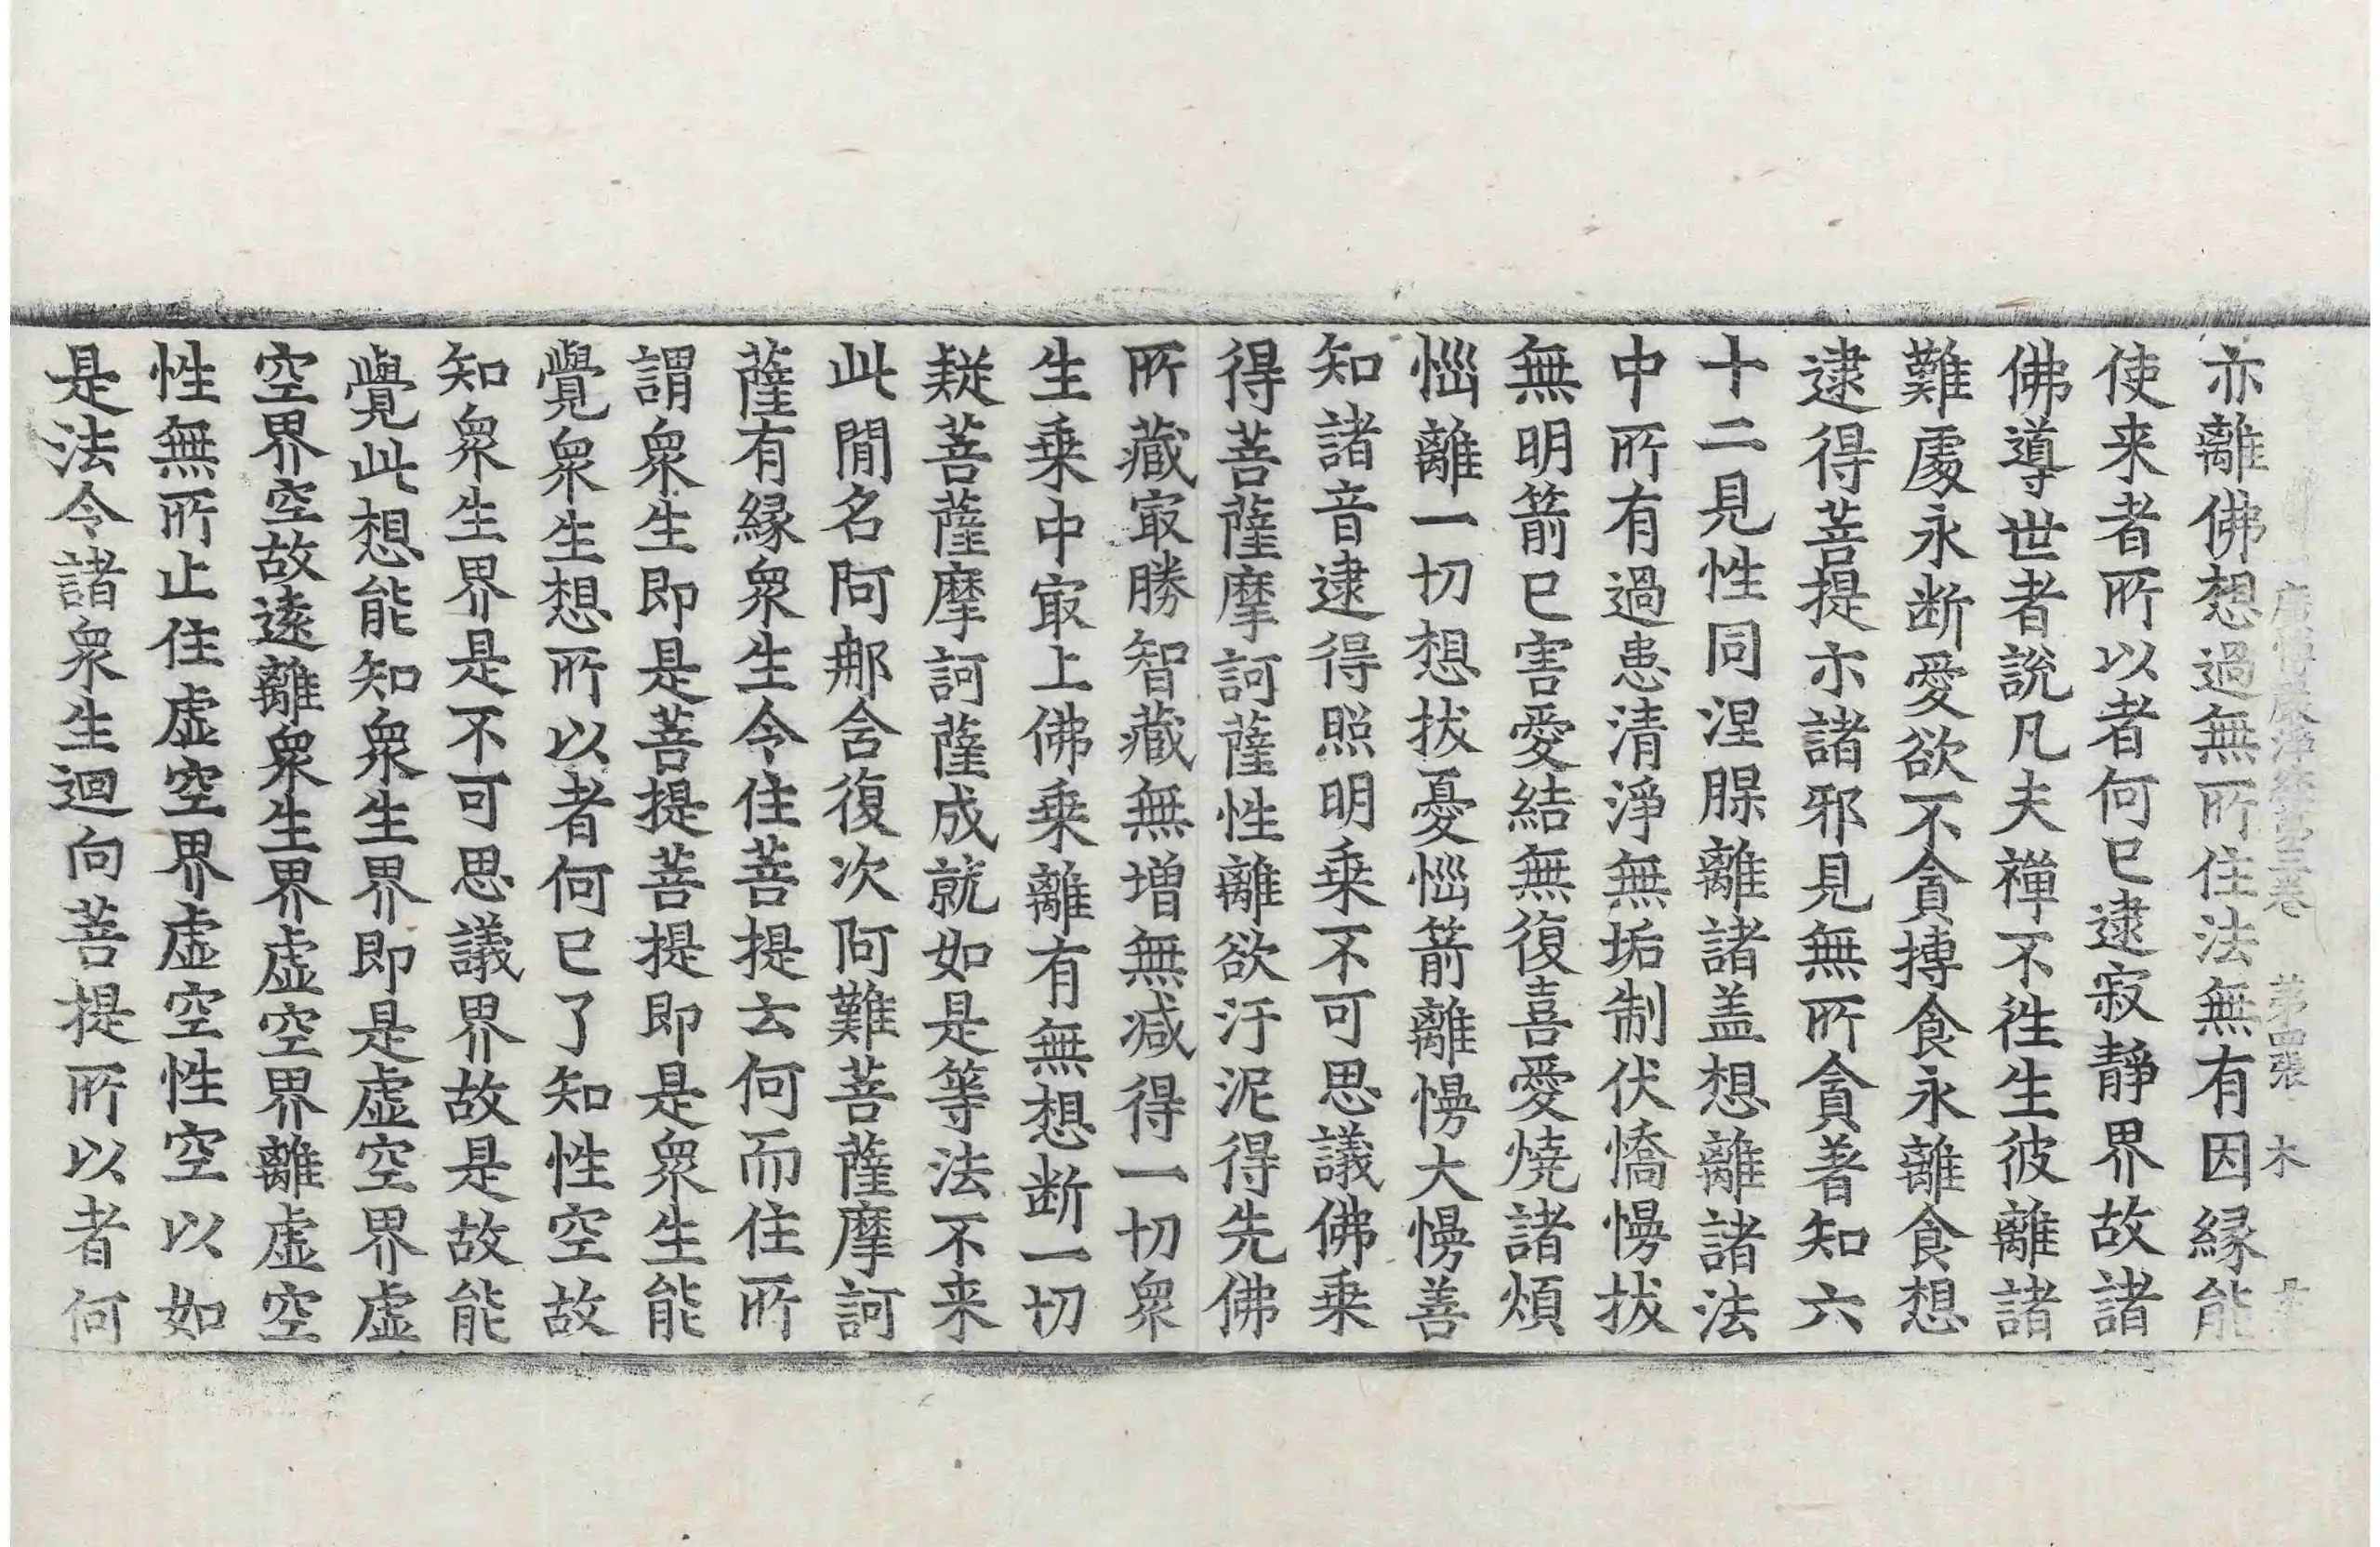 廣博嚴淨經第三卷 第四張 木
亦離佛想過無所住法無有因縁能
使来者所以者何已逮寂靜界故諸
佛導世者說凡夫禪不徃生彼離諸
難處永断愛欲不貪摶食永離食想
逮得菩提亦諸邪見無所貪著知六
十二見性同涅槃離諸盖想離諸法
中所有過患清淨無垢制伏憍慢拔
無明箭已害愛結無復喜愛燒諸煩
惱離一切想拔憂惱箭離慢大慢善
知諸音逮得照明乗不可思議佛乗
得菩薩摩訶薩性離欲汙泥得先佛
所藏㝡勝智藏無増無減得一切衆
生乗中㝡上佛乗離有無想断一切
疑菩薩摩訶薩成就如是等法不来
此閒名阿那含復次阿難菩薩摩訶
薩有縁衆生令住菩提云何而住所
謂衆生即是菩提菩提即是衆生能
覺衆生想所以者何已了知性空故
知衆生界是不可思議界故是故能
覺此想能知衆生界即是虚空界虚
空界空故逺離衆生界虚空界離虚空
性無所止住虚空界虚空性空以如
是法令諸衆生迴向菩提所以者何